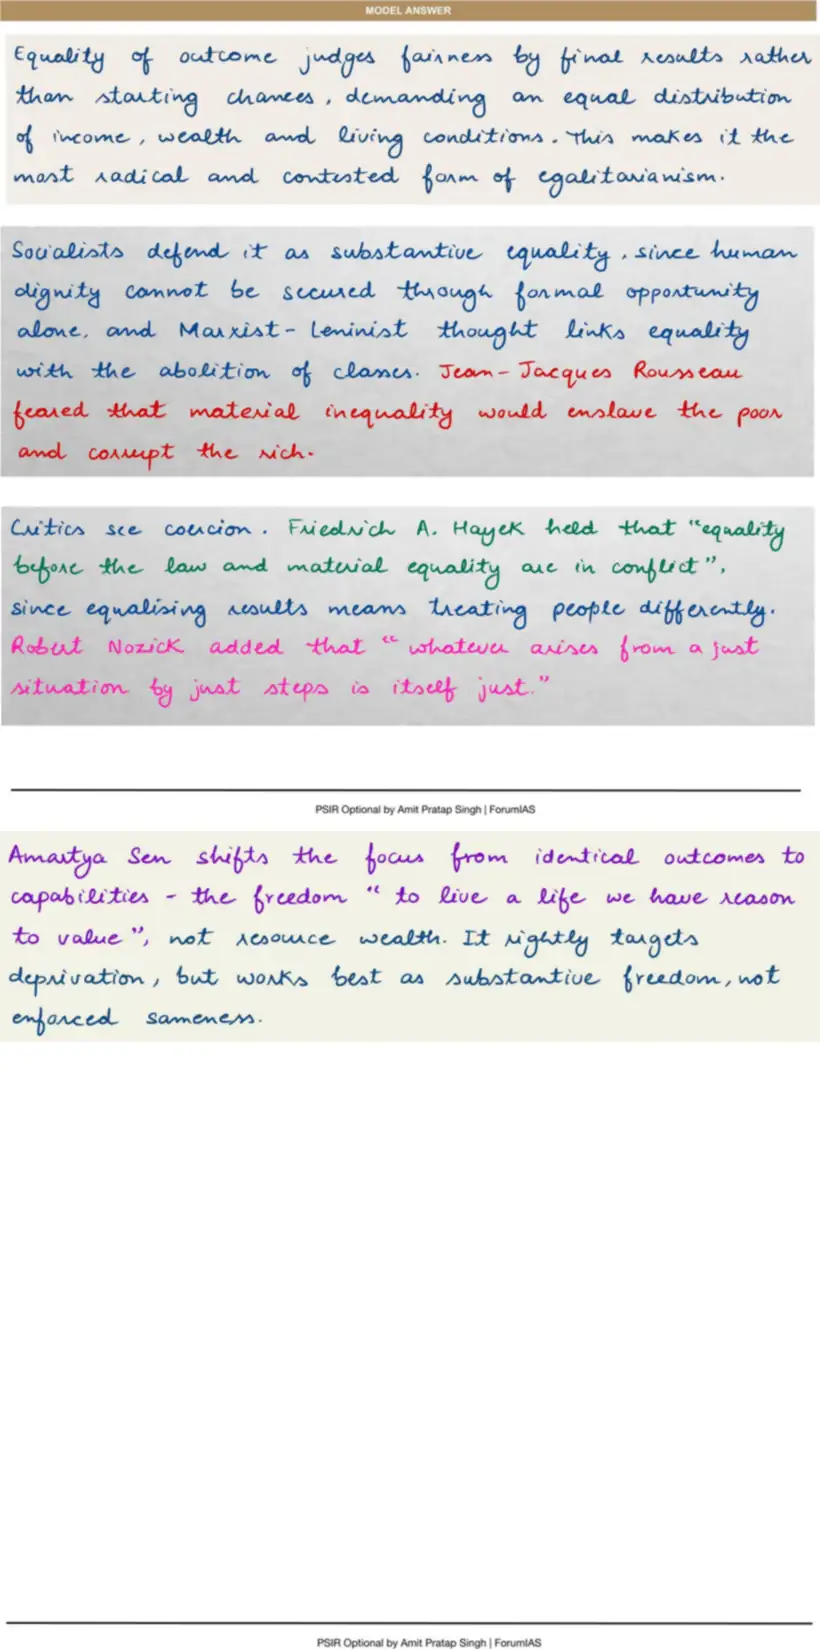 MODEL ANSWER
Equality of outcome judges fairness by final results rather
than starting chances, demanding an equal distribution
of income, wealth and living conditions. This makes it the
most radical and contested form of egalitarianism.
Socialists defend it as substantive equality, since human
dignity cannot be secured through formal opportunity
alone, and Marxist-Leninist thought links equality
with the abolition of classes. Jean-Jacques Rousseau
feared that material inequality would enslave the poor
and corrupt the rich.
Critics see coercion. Friedrich A. Hayek held that "equality
before the law and material equality are in conflict",
since equalising results means treating people differently.
Robert Nozick added that "whatever arises from a just
situation by just steps is itself just."
PSIR Optional by Amit Pratap Singh | ForumIAS
Amartya Sen shifts the focus from identical outcomes to
capabilities - the freedom "to live a life we have reason
to value", not resource wealth. It rightly targets
deprivation, but works best as substantive freedom, not
enforced sameness.
PSIR Optional by Amit Pratap Singh | ForumIAS